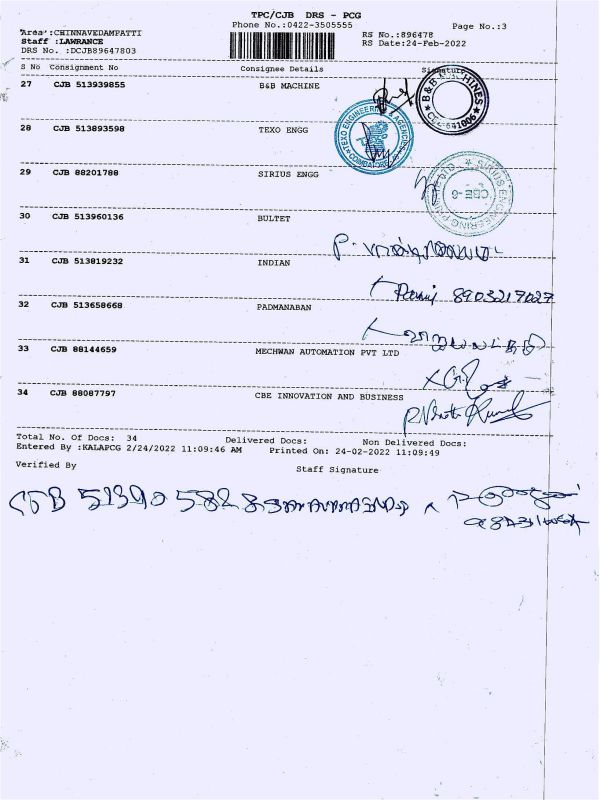 TPC/CJB DRS - PCG
Phone No.:0422-3505555 Page No.:3
Area :CHINNAVEDAMPATTI
Staff :LAWRANCE RS No.:896478
DRS No. :DCJB89647803 RS Date:24-Feb-2022
S No Consignment No Consignee Details Signature
27 CJB 513939855 B&B MACHINE
B&B MACHINES
CBE-641006
28 CJB 513893598 TEXO ENGG
TEXO ENGINEERING & AGENCIES
COIMBATORE
29 CJB 88201788 SIRIUS ENGG
SIRIUS ENGINEERING
CBE-6
30 CJB 513960136 BULTET
P.
31 CJB 513819232 INDIAN
8903217027
32 CJB 513658668 PADMANABAN
33 CJB 88144659 MECHWAN AUTOMATION PVT LTD
34 CJB 88087797 CBE INNOVATION AND BUSINESS
Total No. Of Docs: 34 Delivered Docs: Non Delivered Docs:
Entered By :KALAPCG 2/24/2022 11:09:46 AM Printed On: 24-02-2022 11:09:49
Verified By Staff Signature
CJB 51390582